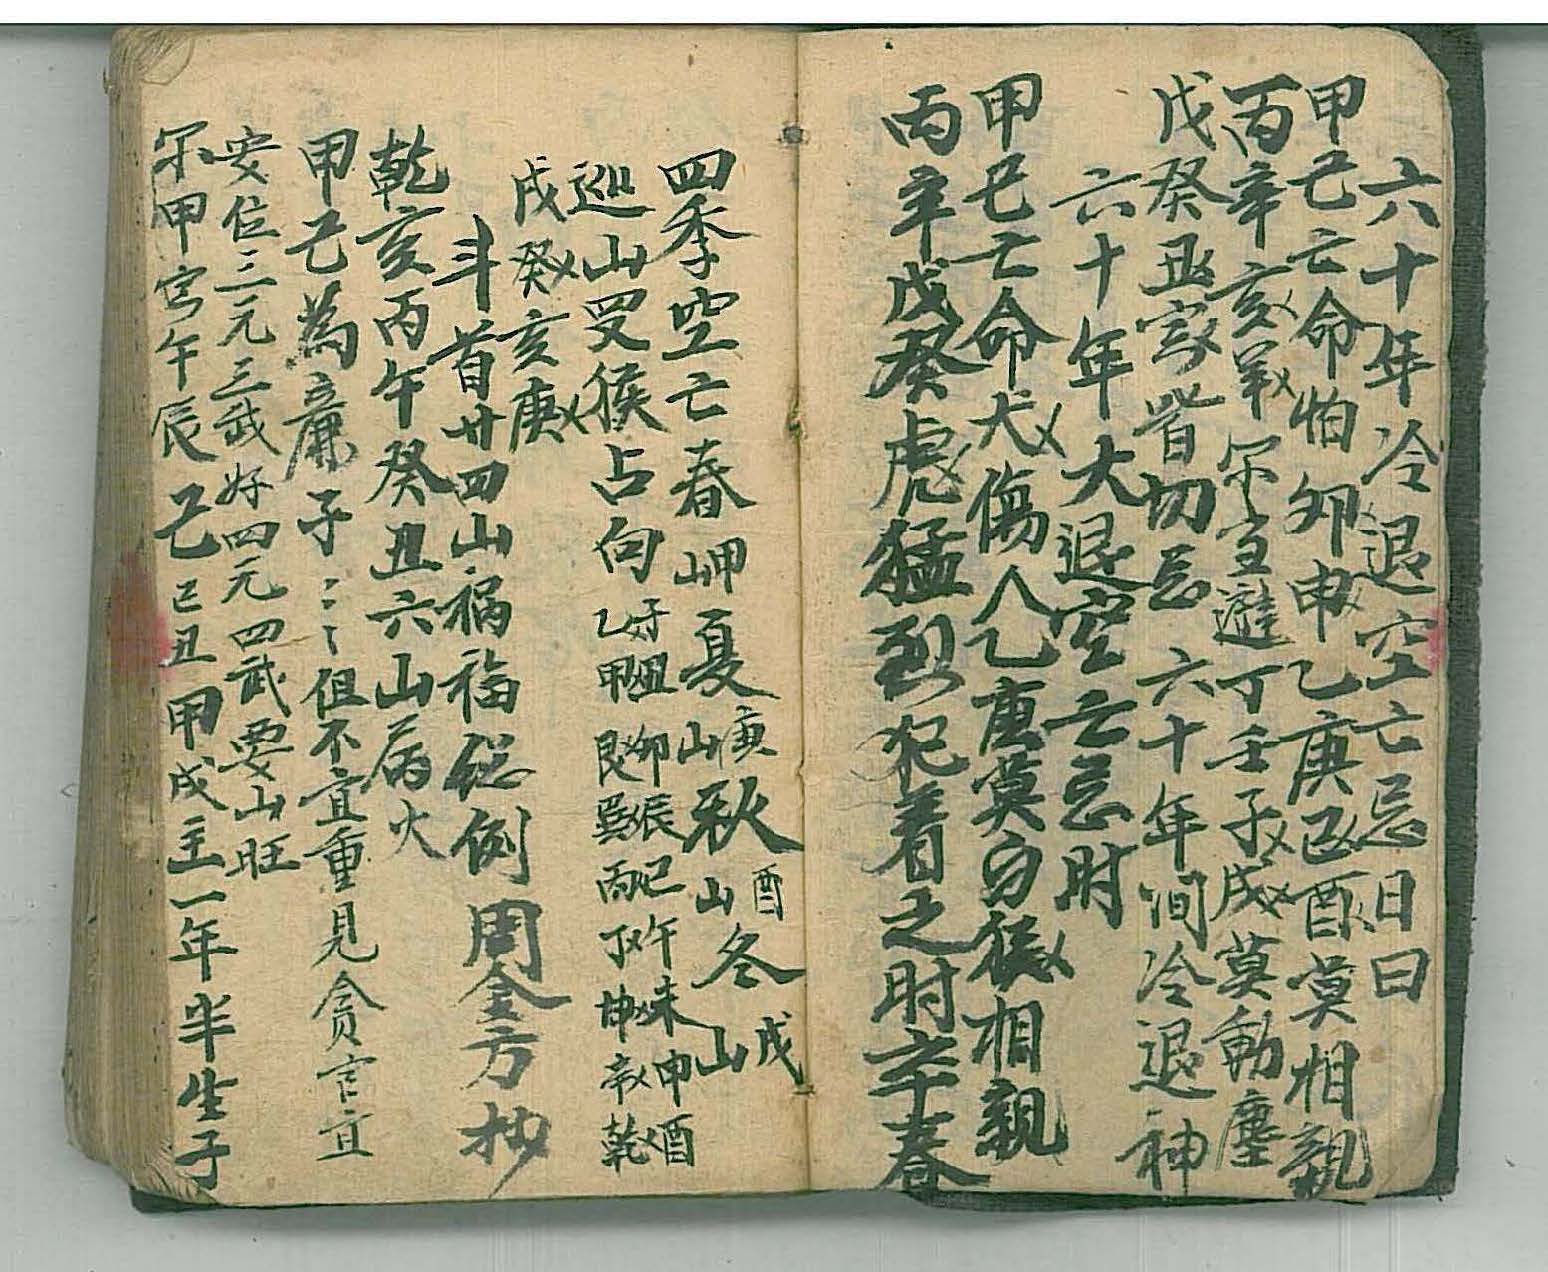 六十年冷退空亡忌日曰
甲己亡命怕卯申乙庚己酉莫相親
丙辛亥羊不宜避丁壬子戌莫動塵
戊癸丑家皆切忌六十年間冷退神
六十年大退空亡忌时
甲己亡命犬傷人乙庚莫另猴相親
丙辛戊癸虎猛犯着之时辛春
四季空亡春岬夏山寅秋山酉冬山戌
巡山罗猴占向
子丑卯辰巳午未申酉
乙甲艮巽丙丁坤辛乾
戌癸亥庚
斗首廿四山禍福總例周金方抄
乾亥丙午癸丑六山屬火
甲己為廉子〻〻但不宜重見貪官宜
安位二元三武好四元四武要山旺
不甲寅午辰己巳丑甲戌主一年半生子